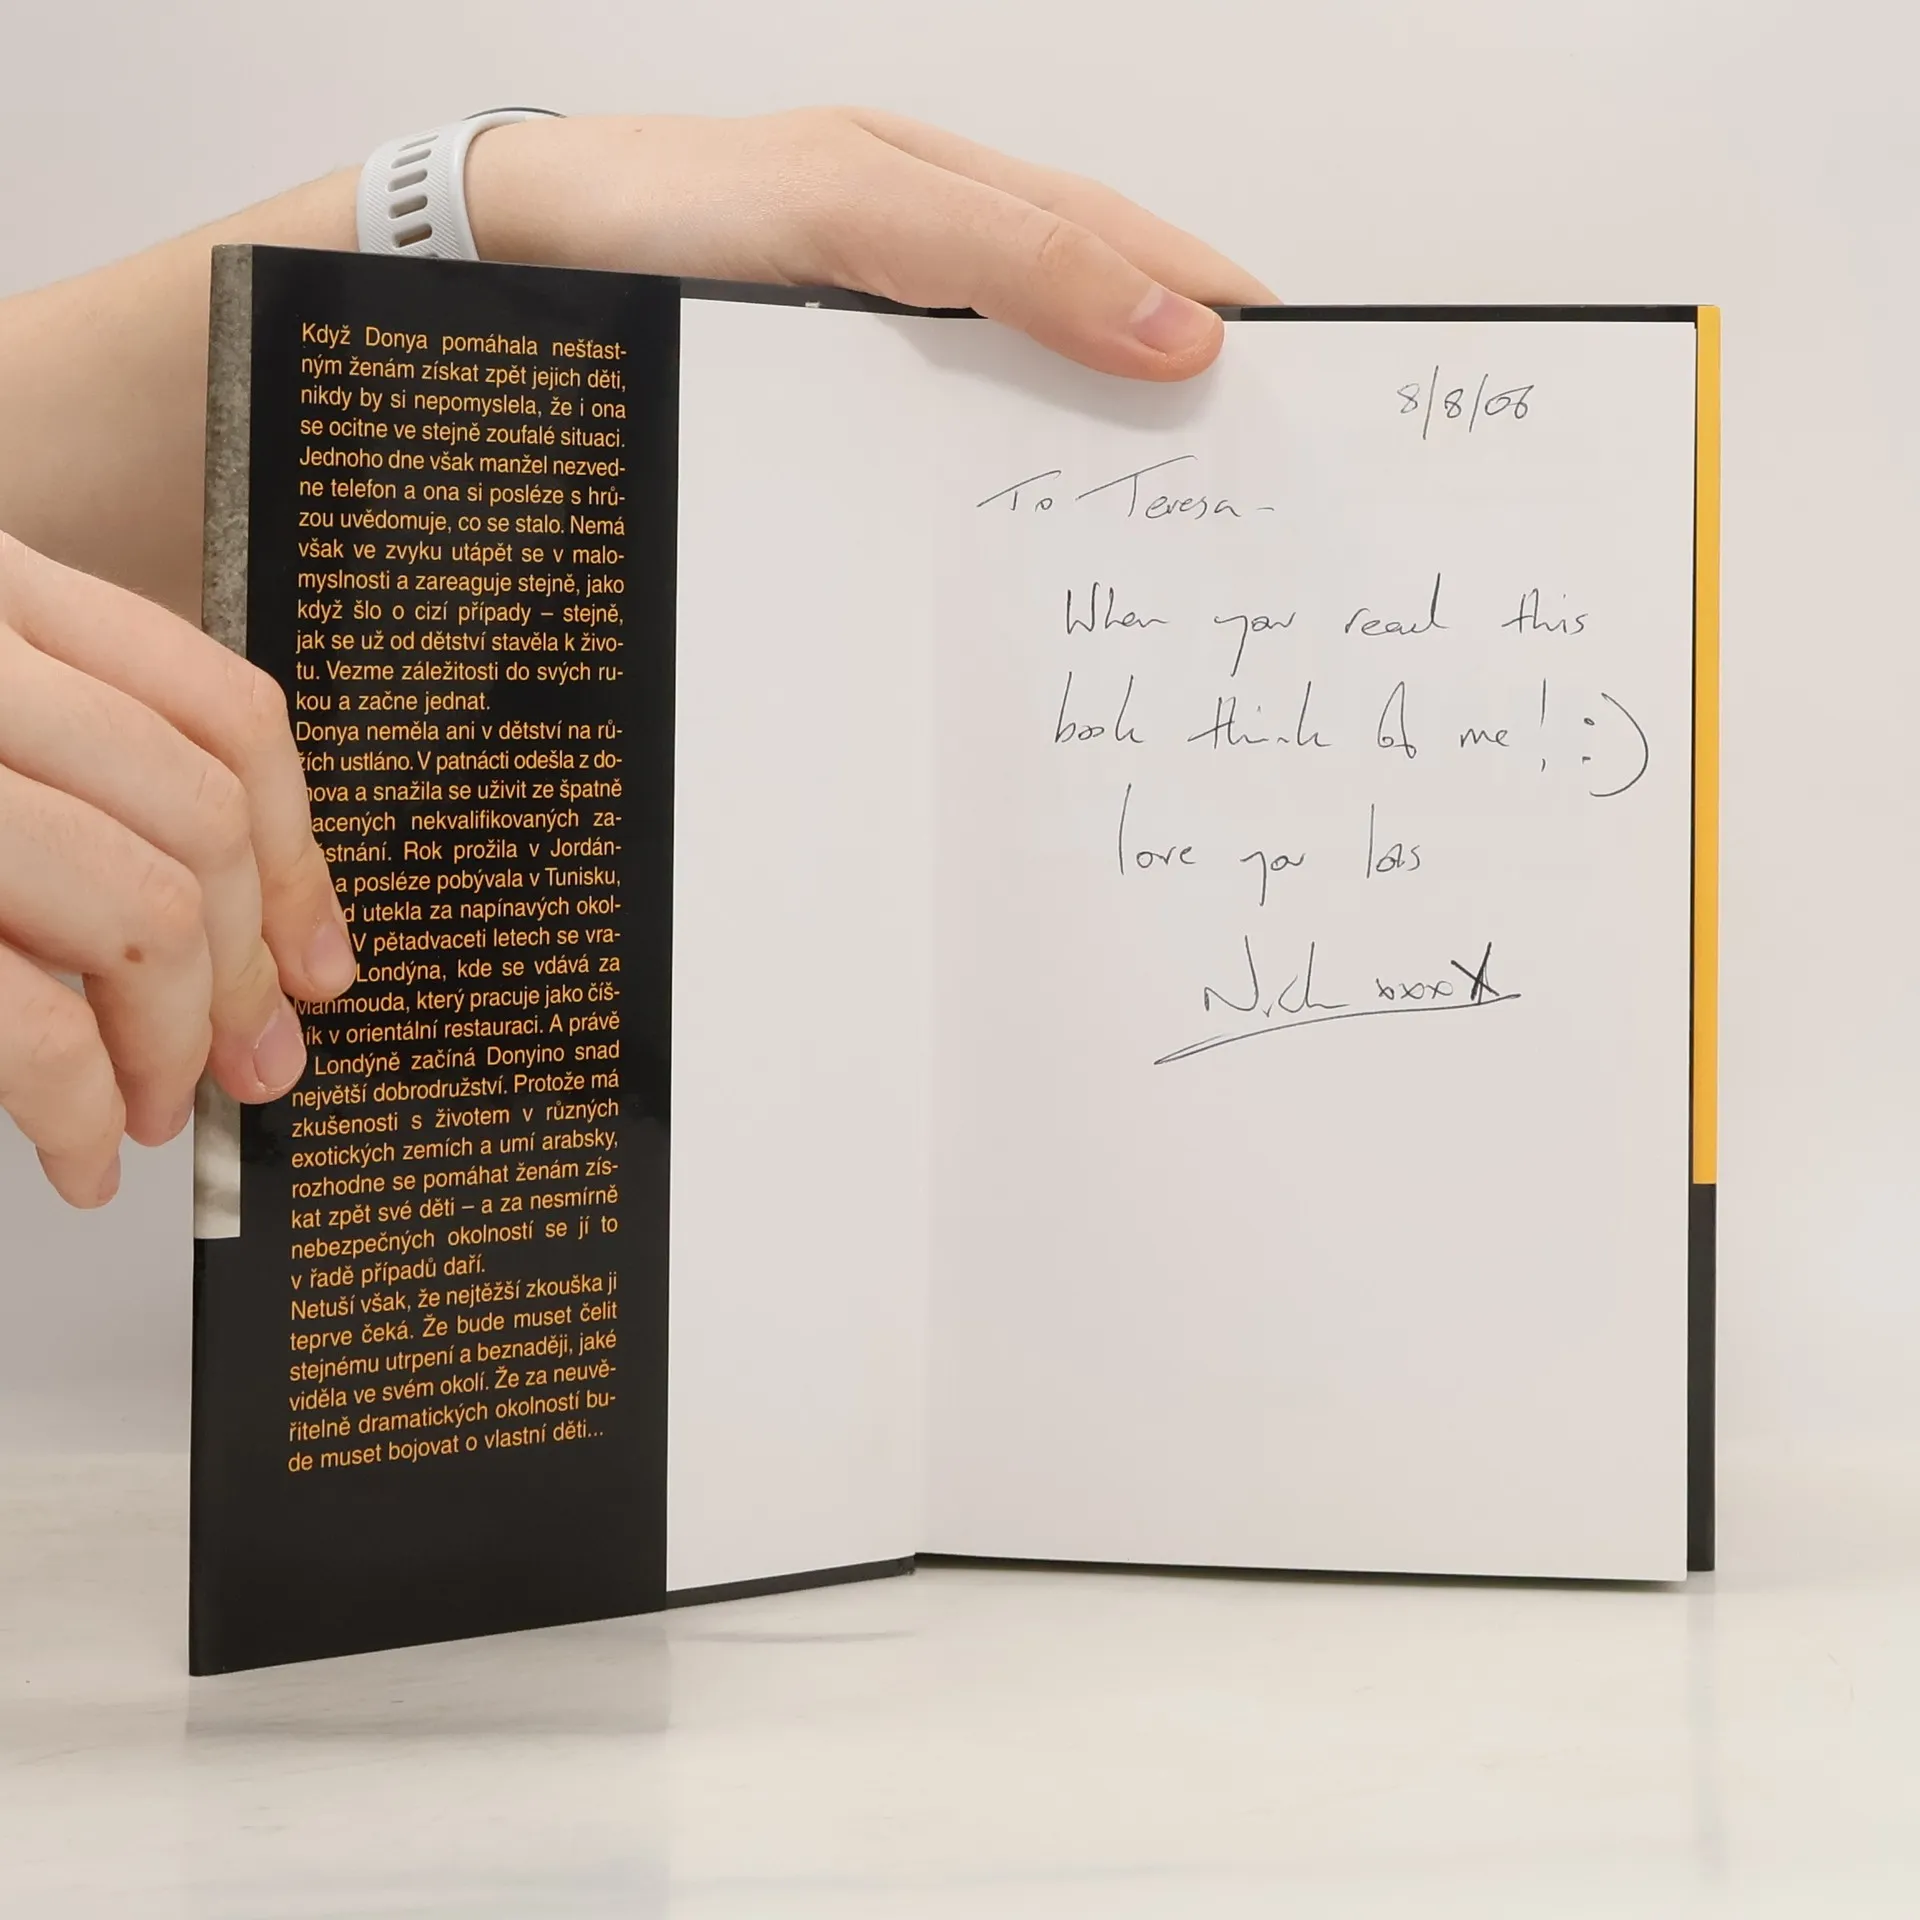 Když Donya pomáhala nešťast-
ným ženám získat zpět jejich děti,
nikdy by si nepomyslela, že i ona
se ocitne ve stejně zoufalé situaci.
Jednoho dne však manžel nezved-
ne telefon a ona si posléze s hrů-
zou uvědomuje, co se stalo. Nemá
však ve zvyku utápět se v malo-
myslnosti a zareaguje stejně, jako
když šlo o cizí případy – stejně,
jak se už od dětství stavěla k živo-
tu. Vezme záležitosti do svých ru-
kou a začne jednat.
Donya neměla ani v dětství na rů-
žích ustláno. V patnácti odešla z do-
nova a snažila se uživit ze špatně
acených nekvalifikovaných za-
stnání. Rok prožila v Jordán-
a posléze pobývala v Tunisku,
d utekla za napínavých okol-
V pětadvaceti letech se vra-
Londýna, kde se vdává za
Mahmouda, který pracuje jako číš-
ík v orientální restauraci. A právě
Londýně začíná Donyino snad
největší dobrodružství. Protože má
zkušenosti s životem v různých
exotických zemích a umí arabsky,
rozhodne se pomáhat ženám zís-
kat zpět své děti – a za nesmírně
nebezpečných okolností se jí to
v řadě případů daří.
Netuší však, že nejtěžší zkouška ji
teprve čeká. Že bude muset čelit
stejnému utrpení a beznaději, jaké
viděla ve svém okolí. Že za neuvě-
řitelně dramatických okolností bu-
de muset bojovat o vlastní děti...
8/8/06
To Teresa -
When you read this
book think of me! :)
love you lots
Nick xxxX